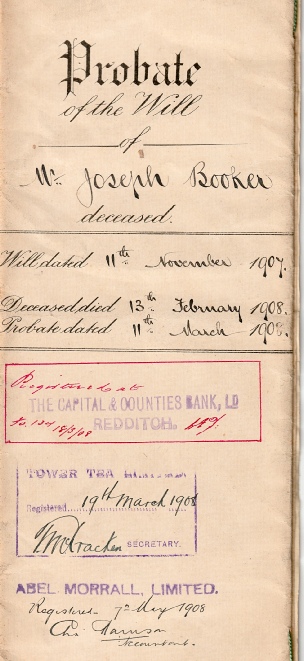 Probate
of the Will
of
Mr. Joseph Booker
deceased.
Will dated 11th November 1907.
Deceased died 13th February 1908.
Probate dated 11th March 1908.
Registered at
THE CAPITAL & COUNTIES BANK, LD
REDDITCH.
18/3/08
TOWER TEA LIMITED
Registered 19th March 1908
SECRETARY.
ABEL MORRALL, LIMITED.
Registered 7th May 1908
Accountant.